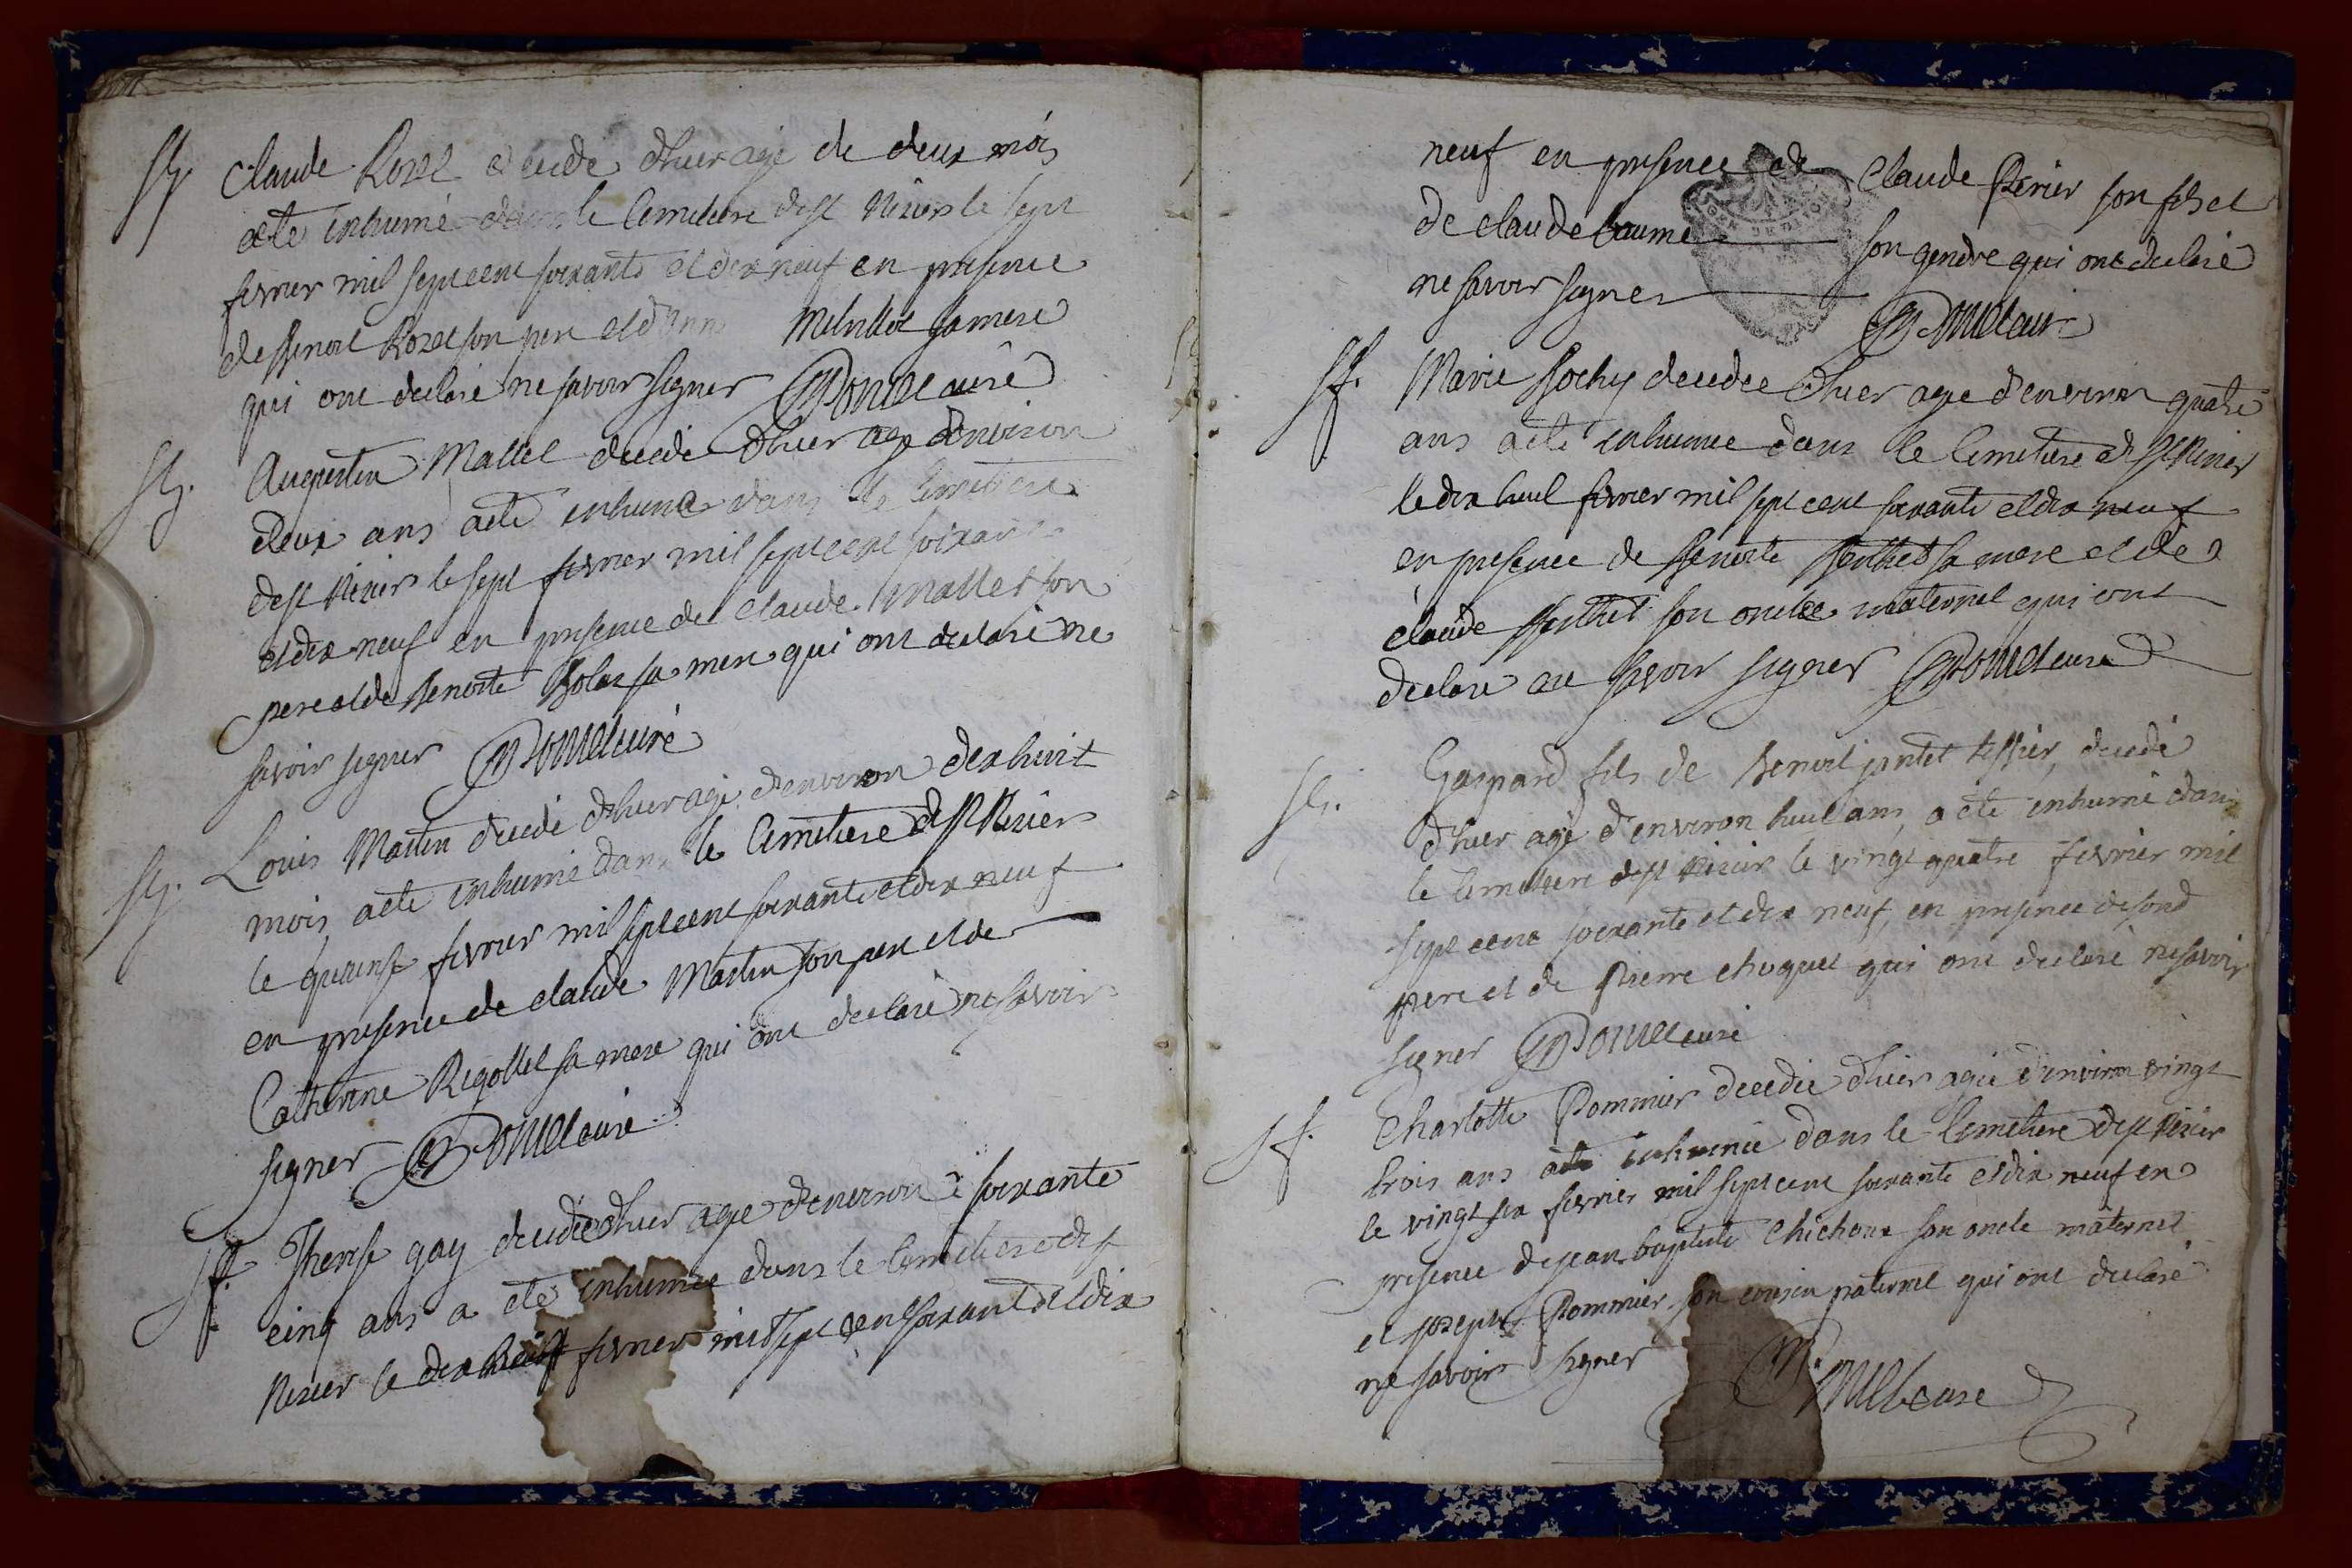 Sg. Claude Rozet decedé d'hier agé de deux mois
a ete inhumé dans le Cimetiere de st Nizier le sept
fevrier mil sept cent soixante et dix neuf en presence
de Benoit Rozet son pere et d'Anne sa mere
qui ont declaré ne savoir signer curé
Sg. Augustin Mallet decedé d'hier age d'environ
deux ans a eté inhumé dans le Cimetiere
de st Nizier le sept fevrier mil sept cent soixante
et dix neuf en presence de Claude Mallet son
pere et de Benoite sa mere qui ont declaré ne
savoir signer curé
Sg. Louis Martin decedé d'hier agé d'environ dix huit
mois a eté inhumé dans le Cimetiere de st Nizier
le quinse fevrier mil sept cent soixante et dix neuf
en presence de claude Martin son pere et de
Catherine Rigottet sa mere qui ont declaré ne savoir
signer curé
Sf. Therese gay decedée d'hier agée d'environ soixante
cinq ans a eté inhumée dans le Cimetiere de st
Nizier le dix fevrier mil sept cent soixante et dix
neuf en presence de Claude Perier son fils et
de claude baume son gendre qui ont declaré
ne savoir signer curé
Sf. Marie decedee d'hier agee d'environ quatre
ans a eté inhumee dans le Cimetiere de st Nizier
le dix huit fevrier mil sept cent soixante et dix neuf
en presence de Benoite Berthet sa mere et de
claude Berthet son oncle maternel qui ont
declare ne savoir signer curé
Sg. Gaspard fils de Benoit jantet tissier, decedé
d'hier agé d'environ huit ans, a eté inhumé dans
le Cimetiere de st Nizier le vingt quatre fevrier mil
sept cent soixante et dix neuf, en presence de son d
pere et de Pierre choquet qui ont declaré ne savoir
signer curé
Sf. Charlotte Pommier decedée d'hier agée d'environ vingt
trois ans a eté inhumée dans le Cimetiere de st Nizier
le vingt six fevrier mil sept cent soixante et dix neuf en
presence de jean baptiste Chichoux son oncle maternel
et joseph Pommier son cousin paternel qui ont declaré
ne savoir signer curé